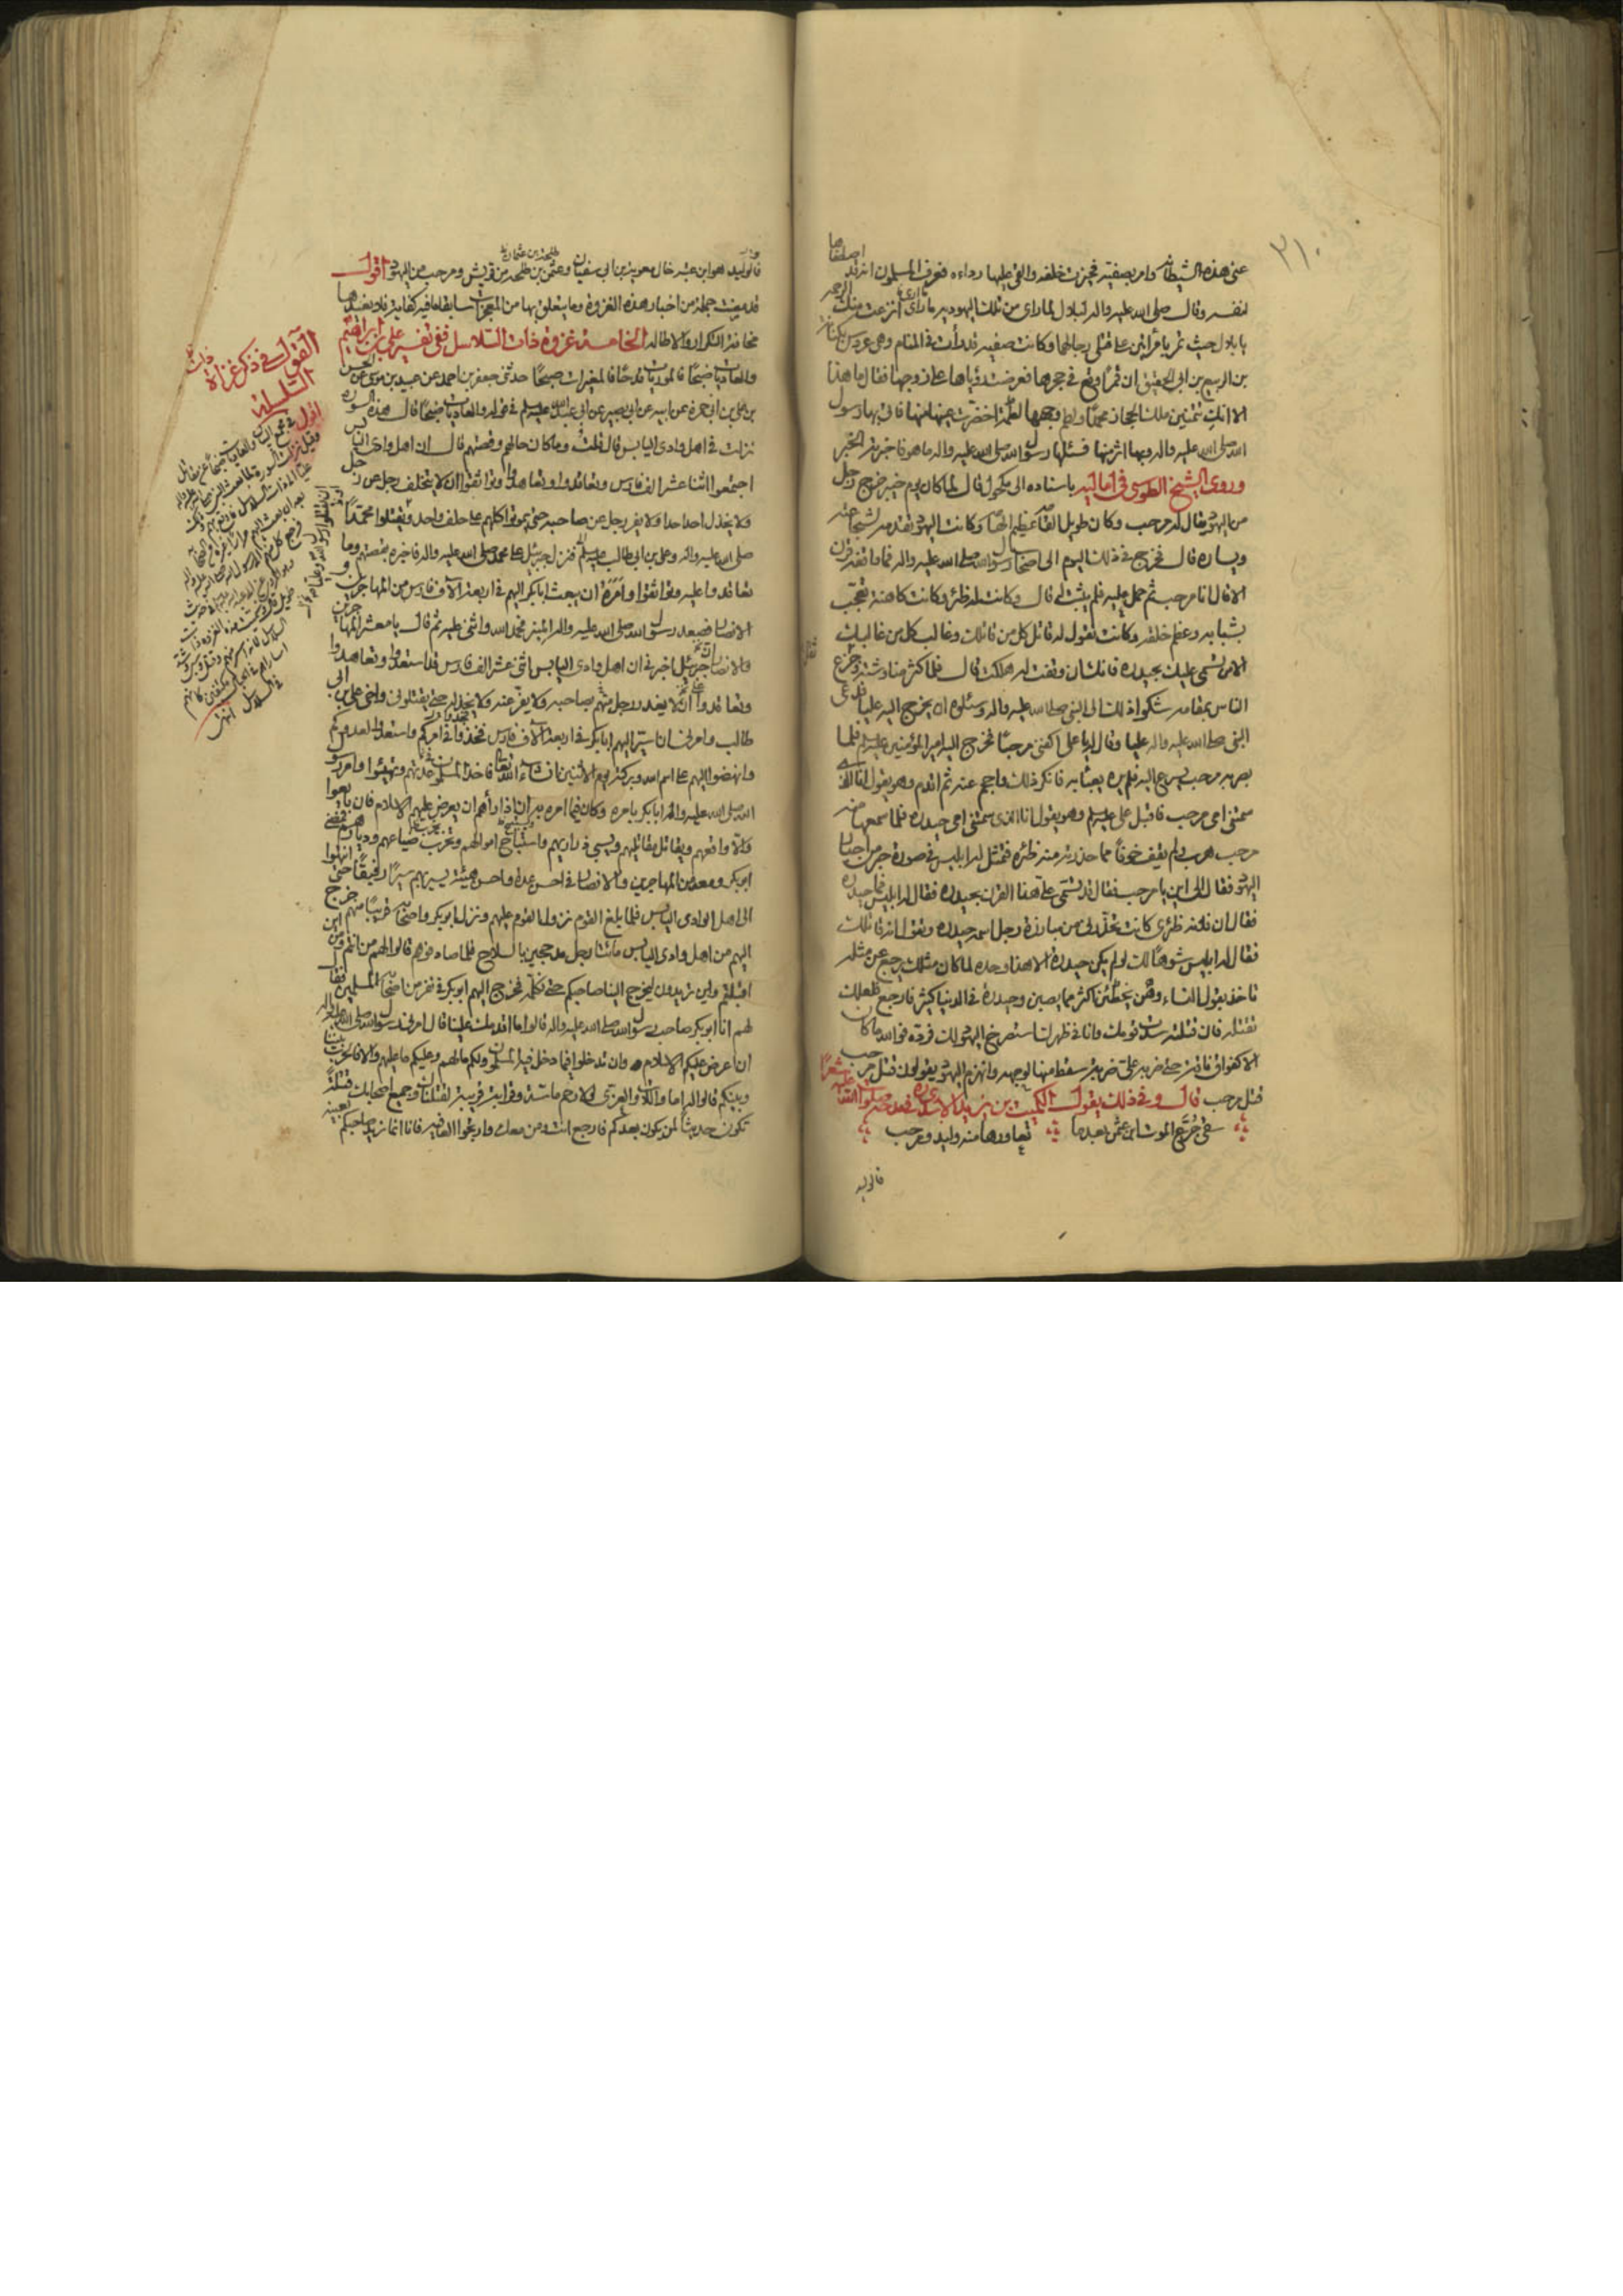 ٣١٠
عنى هذه الشيطانة وامر بصفية فحيزت خلفه والقى عليها رداءه فعرف المسلمون انه قد اصطفاها
لنفسه وقال صلى الله عليه واله لبلال لما راى من تلك اليهودية ما راى انزعت منك الرحمة
يا بلال حيث تمر بامرأتين على قتلى رجالهما وكانت صفية قد رأت في المنام وهى عروس بكنانة
بن الربيع بن ابى الحقيق ان قمرًا وقع في حجرها فعرضت رؤياها على زوجها فقال ما هذا
الا انك تتمنين ملك الحجاز محمدًا ولطم وجهها لطمة اخضرّت عينها منها فاتى بها رسول
الله صلى الله عليه واله وبها اثر منها فسئلها رسول الله صلى الله عليه واله ما هو فاخبرته الخبر
وروى الشيخ الطوسى فى اماليه باسناده الى مكحول قال لما كان يوم خيبر خرج رجل
من اليهود يقال له مرحب وكان طويل القامة عظيم الهامة وكانت اليهود تقدمه لشجاعته
ويساره قال فخرج في ذلك اليوم الى اصحاب رسول الله صلى الله عليه واله فما واقفه قرن
الا قال انا مرحب ثم حمل عليه فلم يثبت له قال وكانت له ظئر وكانت كاهنة تعجب
بشبابه وعظم خلقه وكانت تقول له قاتل كل من قاتلك وغالب كل من غالبك
الا من تسمى عليك بحيدرة فانك ان وقفت له هلكت قال فلما كثر مناوشته وجزع
الناس بمقامه شكوا ذلك الى النبى صلى الله عليه واله وسئلوه ان يخرج اليه عليا فدعى
النبى صلى الله عليه واله عليا وقال له يا على اكفنى مرحبًا فخرج اليه امير المؤمنين عليه السلام فلما
بصر به مرحب يسرع اليه فلم يره يعبأ به فانكر ذلك واحجم عنه ثم اقدم وهو يقول انا الذى
سمتنى امى مرحب فاقبل على عليه السلام وهو يقول انا الذى سمتنى امى حيدره فلما سمعها منه
مرحب هرب ولم يقف خوفًا مما حذرته منه ظئره فتمثل له ابليس في صورة حبر من احبار
اليهود فقال الى اين يا مرحب فقال قد تسمى على هذا القرن بحيدره فقال له ابليس فما حيدره
فقال ان فلانة ظئرى كانت تحذّرنى من مبارزة رجل اسمه حيدره وتقول انه قاتلك
فقال له ابليس شوهًا لك لو لم يكن حيدرة الا هذا وحده لما كان مثلك يرجع عن مثله
تاخذ بقول النساء وهن يخطئن اكثر مما يصبن وحيدرة في الدنيا كثير فارجع فلعلك
تقتله فان قتلته سدت قومك وانا في ظهرك استصرخ اليهود لك فرده فوالله ما كان
الا كفواق ناقة حتى ضربه على ضربة سقط منها لوجهه وانهزم اليهود يقولون قتل مرحب
قتل مرحب قال وفى ذلك يقول الكميت بن يزيد الاسدى
سقى جُرَع الموت ابن عثمن بعدما تعاورها منه وليد ومرحب
فالوليد
فالوليد هو ابن عتبة خال معوية بن ابى سفيان وعثمن بن طلحة من قريش ومرحب من اليهود اقول
قد مضت جملة من اخبار هذه الغزوة وما يتعلق بها من المعجزات سابقا بما فيه كفاية فلا نعيدها
مخافة التكرار والاطالة الخامسة غزوة ذات السلاسل ففى تفسير على بن ابراهيم
والعاديات ضبحًا فالموريات قدحًا فالمغيرات صبحًا حدثنى جعفر بن احمد عن عبيد بن موسى عن الحسن
بن على بن ابى حمزة عن ابيه عن ابى بصير عن ابى عبد الله عليه السلام في قوله والعاديات ضبحًا قال هذه السورة
نزلت في اهل وادى اليابس قال قلت وما كان حالهم وقصتهم قال ان اهل وادى اليابس
اجتمعوا اثنا عشر الف فارس وتعاقدوا وتعاهدوا وتواثقوا ان لا يتخلف رجل عن رجل
ولا يخذل احد احدا ولا يفر رجل عن صاحبه حتى يموتوا كلهم على حلف واحد ويقتلوا محمّدًا
صلى الله عليه واله وعلى بن ابى طالب عليه السلام فنزل جبرئيل على محمد صلى الله عليه واله فاخبره بقصتهم وما
تعاقدوا عليه وتواثقوا وامره ان يبعث ابا بكر اليهم في اربعة آلاف فارس من المهاجرين و
الانصار فصعد رسول الله صلى الله عليه واله المنبر فحمد الله واثنى عليه ثم قال يا معشر المهاجرين
والانصار ان جبرئيل اخبرنى ان اهل وادى اليابس اثنى عشر الف فارس قد استعدوا وتعاهدوا
وتعاقدوا ان لا يغدر رجل منهم بصاحبه ولا يفر عنه ولا يخذله حتى يقتلونى واخى على بن ابى
طالب وامرنى ان اسيّر اليهم ابا بكر في اربعة آلاف فارس فخذوا في امركم واستعدوا لعدوكم
وانهضوا اليهم على اسم الله وبركته يوم الاثنين ان شاء الله تعالى فاخذ المسلمون عدتهم وتهيئوا وامر رسول
الله صلى الله عليه واله ابا بكر بامره وكان فيما امره به ان اذا رأهم ان يعرض عليهم الاسلام فان بايعوا
والا واقعهم ويقاتل مقاتليهم ويسبى ذراريهم واستباح اموالهم وخرّب ضياعهم وديارهم فمضى
ابو بكر ومعه من المهاجرين والانصار في احسن عدة واحسن هيئة يسير بهم سيرًا رفيقًا حتى انتهوا
الى اهل الوادى اليابس فلما بلغ القوم نزول القوم عليهم ونزل ابو بكر واصحابه قريبًا منهم خرج
اليهم من اهل وادى اليابس مأتا رجل مدججين بالسلاح فلما صادفوهم قالوا لهم من انتم من اين
اقبلتم واين تريدون ليخرج الينا صاحبكم حتى نكلمه فخرج اليهم ابو بكر في نفر من اصحابه المسلمين فقال
لهم انا ابو بكر صاحب رسول الله صلى الله عليه واله قالوا ما اقدمك علينا قال امرنى رسول الله صلى الله عليه واله
ان اعرض عليكم الاسلام وان تدخلوا فيما دخل فيه المسلمون ولكم ما لهم وعليكم ما عليهم والا فالحرب بيننا
وبينكم قالوا له اما واللات والعزّى لولا رحم ماسّة وقرابة قريبة لقتلناك وجميع اصحابك قتلة
تكون حديثًا لمن يكون بعدكم فارجع انت ومن معك واربحوا العافية فانا انما نريد صاحبكم بعينه
القول في ذكر غزاة
ذات
السلسلة